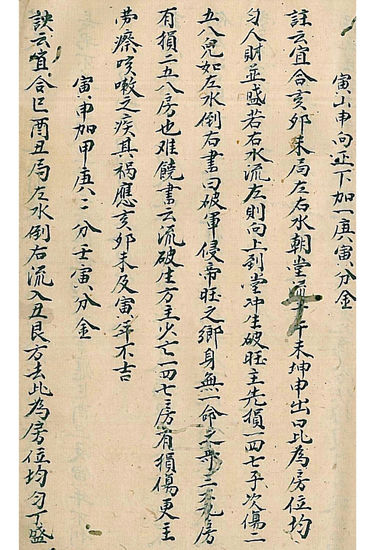 寅山申向正下加一庚寅分金
註云宜合亥卯未局左右水朝堂午未坤申出口此為房位均
匀人財並盛若右水流左則向上到堂冲生破旺主先損一四七次傷二
五八兒如左水倒右書曰破軍侵帝旺之鄉身無一命之三房
有損二五八房也难饒書云流破生方主少亡一四七房有損傷更主
劳瘵咳嗽之疾其禍應亥卯未及寅年不吉
寅申加甲庚二分壬寅分金
訣云宜合巳酉丑局左水倒右流入丑艮方去此為房位均匀丁盛